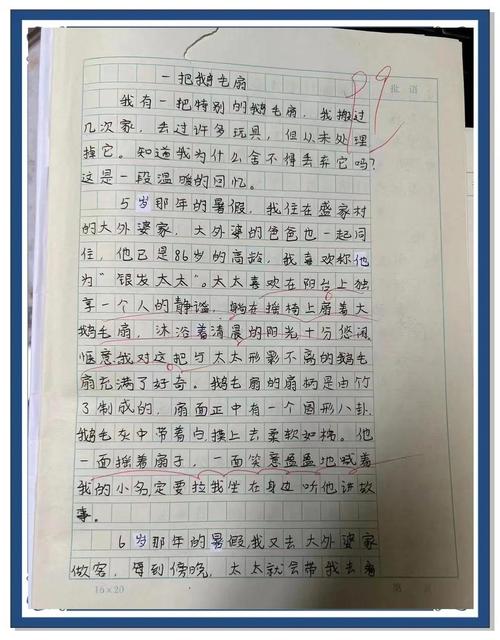 一把鹅毛扇
99
批语
我有一把特别的鹅毛扇，我搬过
几次家，丢过许多玩具，但从未处理
掉它。知道我为什么舍不得丢弃它吗？
这是一段温暖的回忆。
5岁那年的暑假，我住在盛家村
的大外婆家，大外婆的爸爸也一起同
住，他已是86岁的高龄，我喜欢称他
为“银发太太”。太太喜欢在阳台上独
享一个人的静谧，躺在摇椅上扇着大
鹅毛扇，沐浴着清晨的阳光十分悠闲
惬意我对这把与太太形影不离的鹅毛
扇充满了好奇。鹅毛扇的扇柄是由竹
子制成的，扇面正中有一个圆形八卦
鹅毛灰中带着白，摸上去柔软如棉。他
一面摇着扇子，一面笑意盈盈地喊着
我的小名，定要拉我坐在身边听他讲故
事。
6岁那年的暑假，我又去大外婆家
做客，等到傍晚，太太就会带我去看
16×20
第 页